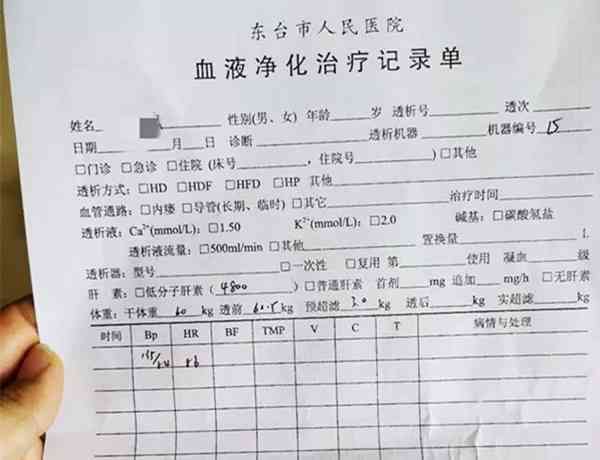 东台市人民医院
血液净化治疗记录单
姓名 性别(男、女) 年龄 岁 透析号 透次
日期 月 日 诊断 透析机器 机器编号 15
□门诊 □急诊 □住院 (床号 , 住院号 ) □其他
透析方式: □HD □HDF □HFD □HP 其他
血管通路: □内瘘 □导管(长期、临时) □其它 治疗时间
透析液: Ca²⁺(mmol/L): □1.50 K⁺(mmol/L): □2.0 碱基: □碳酸氢盐
透析液流量: □500ml/min □其他 置换量 L
透析器: 型号 □一次性 □复用 第 使用 凝血 级
肝 素: □低分子肝素 (4800 ) □普通肝素 首剂 mg 追加 mg/h □无肝素
体重: 干体重 60 kg 透前 kg 预超滤 3.0 kg 透后 kg 实超滤 kg
时间 Bp HR BF TMP V C T 病情与处理
86